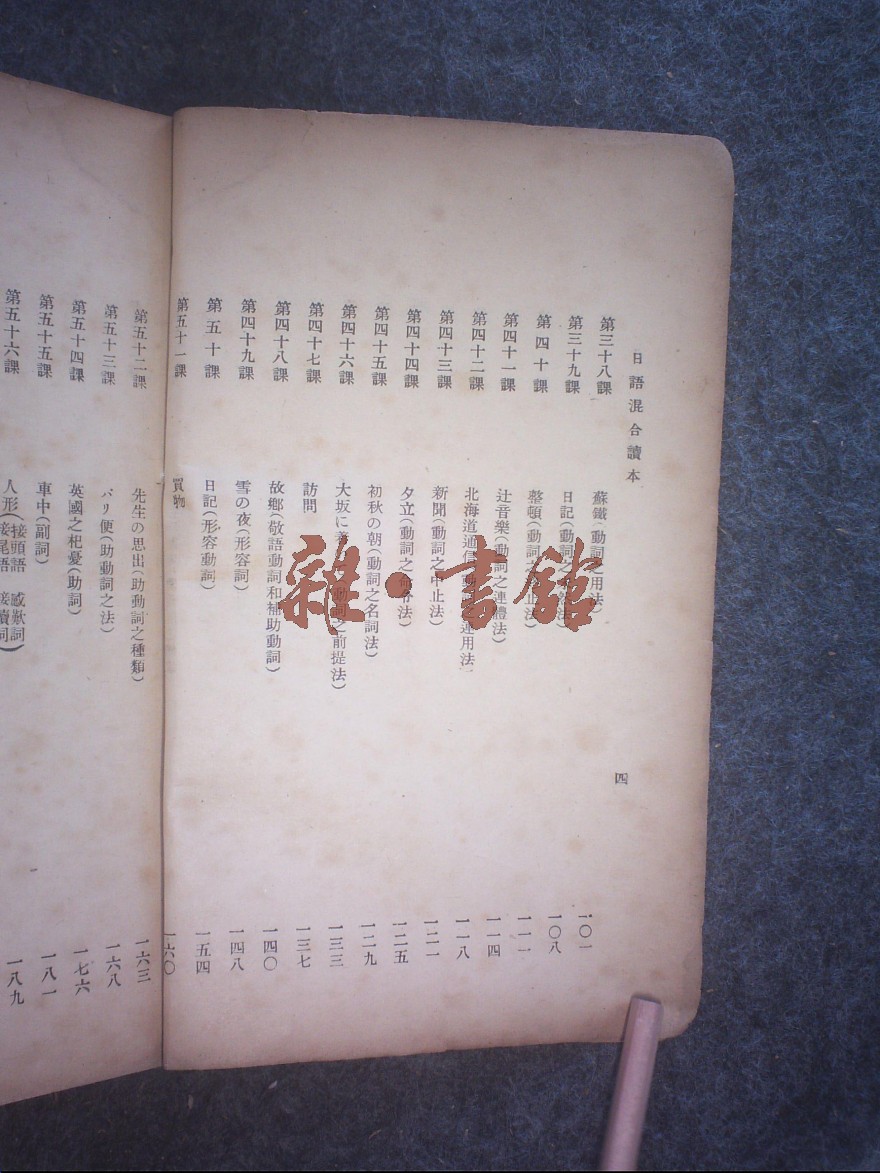 日語混合讀本
四
第三十八課 蘇鐵(動詞之用法) 一〇一
第三十九課 日記(動詞之 法) 一〇八
第四十課 整頓(動詞之 止法) 一一一
第四十一課 辻音樂(動詞之連體法) 一一四
第四十二課 北海道通信 動 連用法 一一八
第四十三課 新聞(動詞之中止法) 一二一
第四十四課 夕立(動詞之命令法) 一二五
第四十五課 初秋の朝(動詞之名詞法) 一二九
第四十六課 大坂に 動詞之前提法) 一三三
第四十七課 訪問 一三七
第四十八課 故鄉(敬語動詞和補助動詞) 一四〇
第四十九課 雪の夜(形容詞) 一四八
第五十課 日記(形容動詞) 一五四
第五十一課 買物 一六〇
第五十二課 先生の思出(助動詞之種類) 一六三
第五十三課 パリ便(助動詞之法) 一六八
第五十四課 英國之杞憂(助詞) 一七六
第五十五課 車中(副詞) 一八一
第五十六課 人形(接頭語 感歎詞 接尾語 接續詞) 一八九
雜·書館